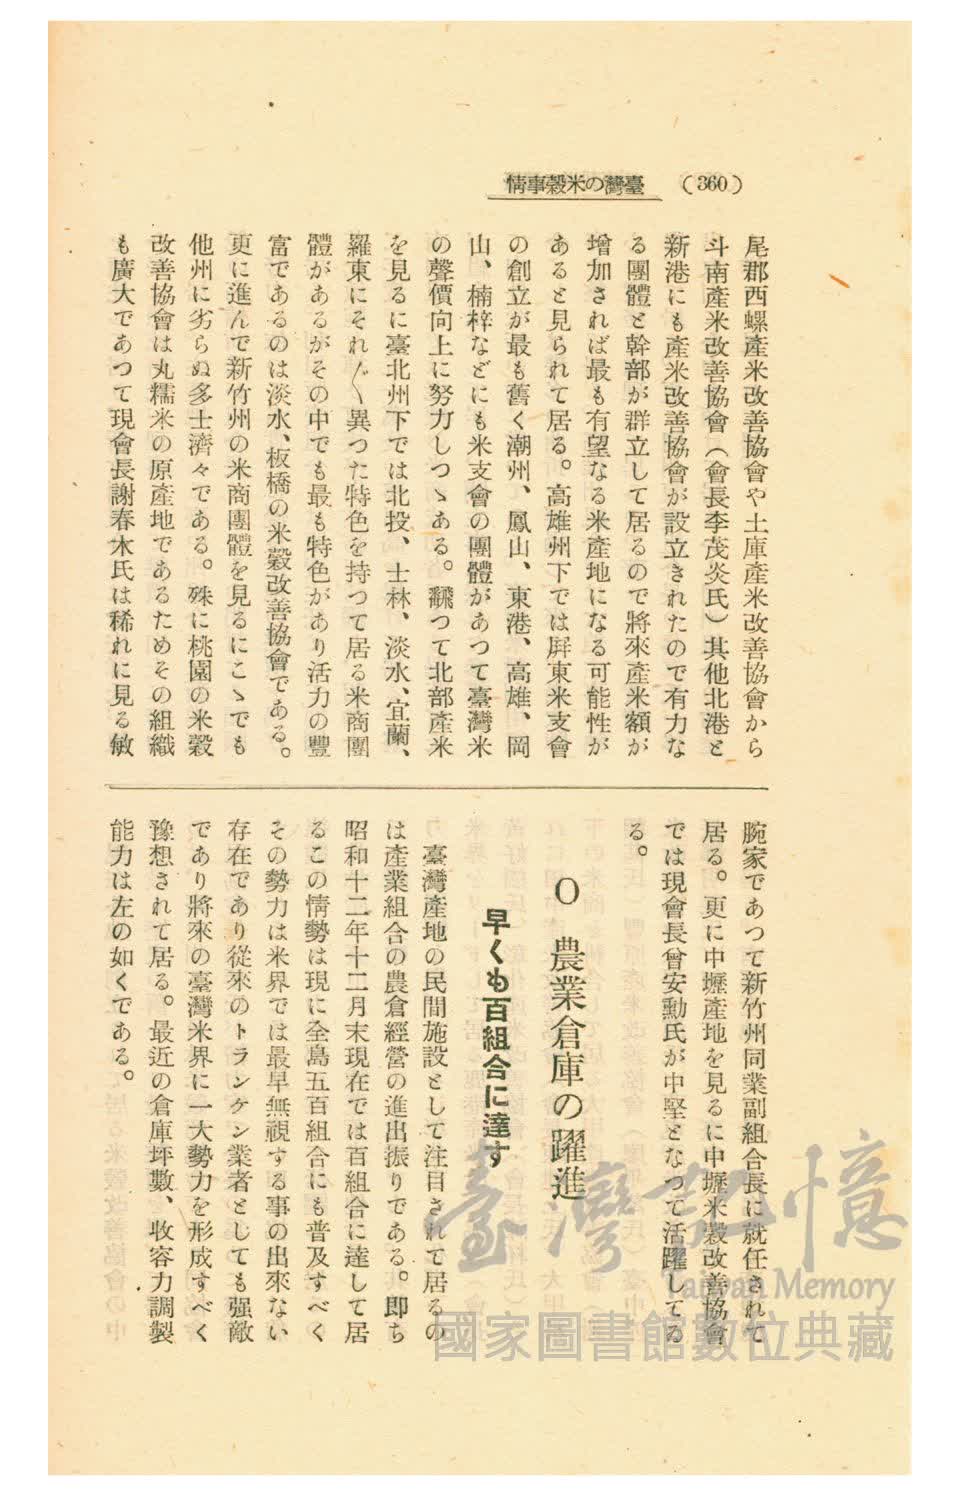 情事穀米の灣臺 (360)
尾郡西螺產米改善協會や土庫產米改善協會から
斗南產米改善協會（會長李茂炎氏）其他北港と
新港にも產米改善協會が設立されたので有力な
る團體と幹部が群立して居るので將來產米額が
增加されば最も有望なる米產地になる可能性が
あると見られて居る。高雄州下では屛東米支會
の創立が最も舊く潮州、鳳山、東港、高雄、岡
山、楠梓などにも米支會の團體があつて臺灣米
の聲價向上に努力しつゝある。飜つて北部產米
を見るに臺北州下では北投、士林、淡水、宜蘭、
羅東にそれ〴〵異つた特色を持つて居る米商團
體があるがその中でも最も特色があり活力の豐
富であるのは淡水、板橋の米穀改善協會である。
更に進んで新竹州の米商團體を見るにこゝでも
他州に劣らぬ多士濟々である。殊に桃園の米穀
改善協會は丸糯米の原產地であるためその組織
も廣大であつて現會長謝春木氏は稀れに見る敏
腕家であつて新竹州同業副組合長に就任されて
居る。更に中壢產地を見るに中壢米穀改善協會
では現會長曾安勳氏が中堅となつて活躍してゐ
る。
○ 農業倉庫の躍進
早くも百組合に達す
臺灣產地の民間施設として注目されて居るの
は產業組合の農倉經營の進出振りである。卽ち
昭和十二年十二月末現在では百組合に達して居
るこの情勢は現に全島五百組合にも普及すべく
その勢力は米界では最早無視する事の出來ない
存在であり從來のトランケン業者としても强敵
であり將來の臺灣米界に一大勢力を形成すべく
豫想されて居る。最近の倉庫坪數、收容力調製
能力は左の如くである。
臺灣記憶
Taiwan Memory
國家圖書館數位典藏